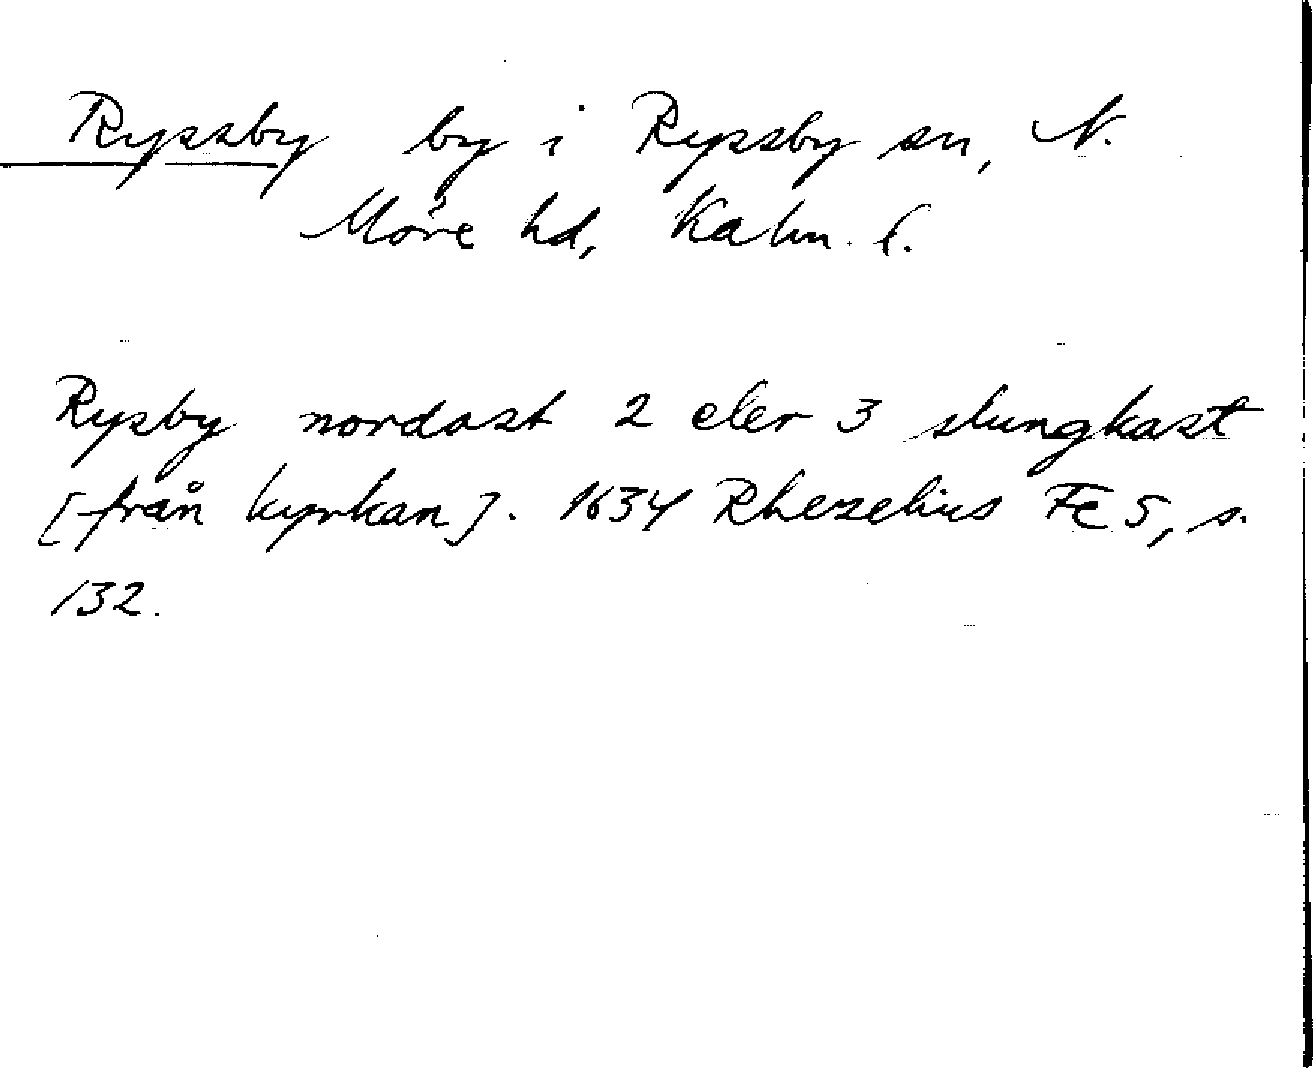 Ryssby by i Ryssby sn, N.
Möre hd, Kalm. l.
Rysby nordost 2 eler 3 slungkast
[från kyrkan]. 1634 Rhezelius Fc 5, s.
132.